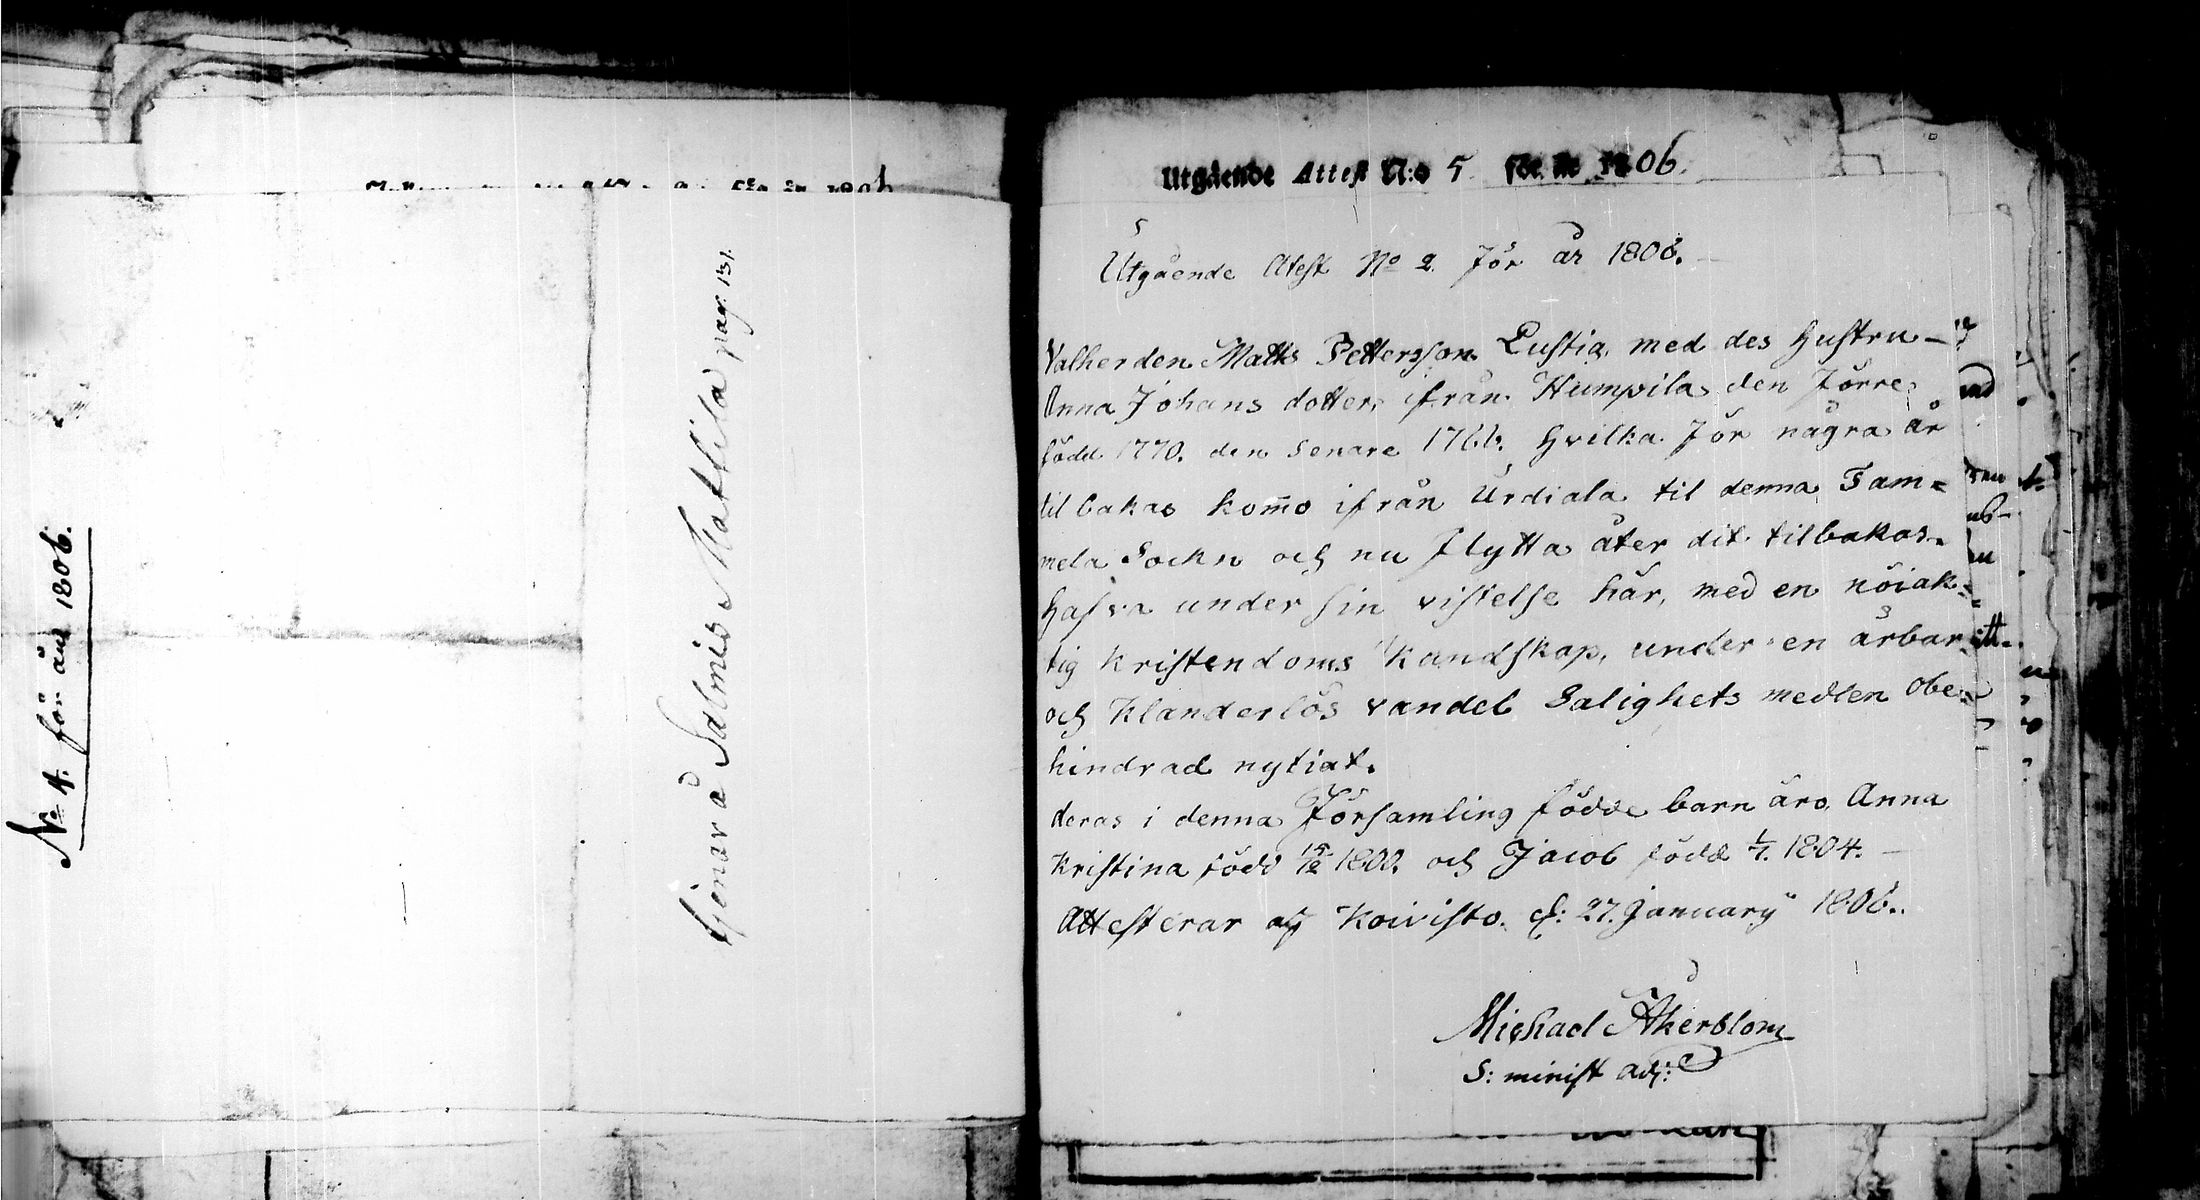 No 4. för år 1806.
tjenar å Salmis Mattila pag. 131.
Utgående Attest N:o 5 för år 1806.
Utgående Atest No 2. för år 1806.
Valherden Matts Pettersson Lustig, med des hustru
Anna Johans dotter, ifrån Humpila, den förre
född 1770. den senare 1766. hvilka för några år
tilbakas kom̄o ifrån Urdiala til denna Tam=
mela Sockn och nu flytta åter dit tilbakas.
hafva under sin vistelse här, med en nöiak=
tig kristendoms kundskap, under en ärbar
och klanderlös vandel Salighets medlen obe=
hindrad nytiat.
deras i denna Församling födde barn äro Anna
Kristina född 15/12 1800. och Jacob född 1/7. 1804.
Attesterar af Koivisto. d: 27. January 1806.
Michael Åkerblom
S: minist adj: